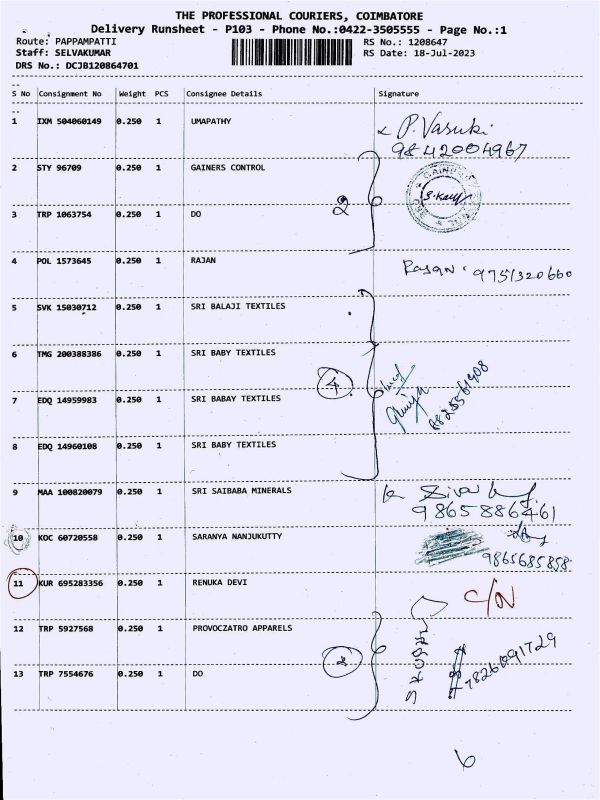 THE PROFESSIONAL COURIERS, COIMBATORE
Delivery Runsheet - P103 - Phone No.:0422-3505555 - Page No.:1
Route: PAPPAMPATTI RS No.: 1208647
Staff: SELVAKUMAR RS Date: 18-Jul-2023
DRS No.: DCJB120864701
S No Consignment No Weight PCS Consignee Details Signature
1 IXM 504060149 0.250 1 UMAPATHY P. Vasuki
9842004967
2 STY 96709 0.250 1 GAINERS CONTROL
2
3 TRP 1063754 0.250 1 DO
4 POL 1573645 0.250 1 RAJAN Rajan. 9751320660
5 SVK 15030712 0.250 1 SRI BALAJI TEXTILES
6 TMG 200388386 0.250 1 SRI BABY TEXTILES
4
7 EDQ 14959983 0.250 1 SRI BABAY TEXTILES
8 EDQ 14960108 0.250 1 SRI BABY TEXTILES
9 MAA 100820079 0.250 1 SRI SAIBABA MINERALS
9865886461
10 KOC 60720558 0.250 1 SARANYA NANJUKUTTY
9865685858
11 KUR 695283356 0.250 1 RENUKA DEVI C/N
12 TRP 5927568 0.250 1 PROVOCZATRO APPARELS
2 7826091729
13 TRP 7554676 0.250 1 DO
6